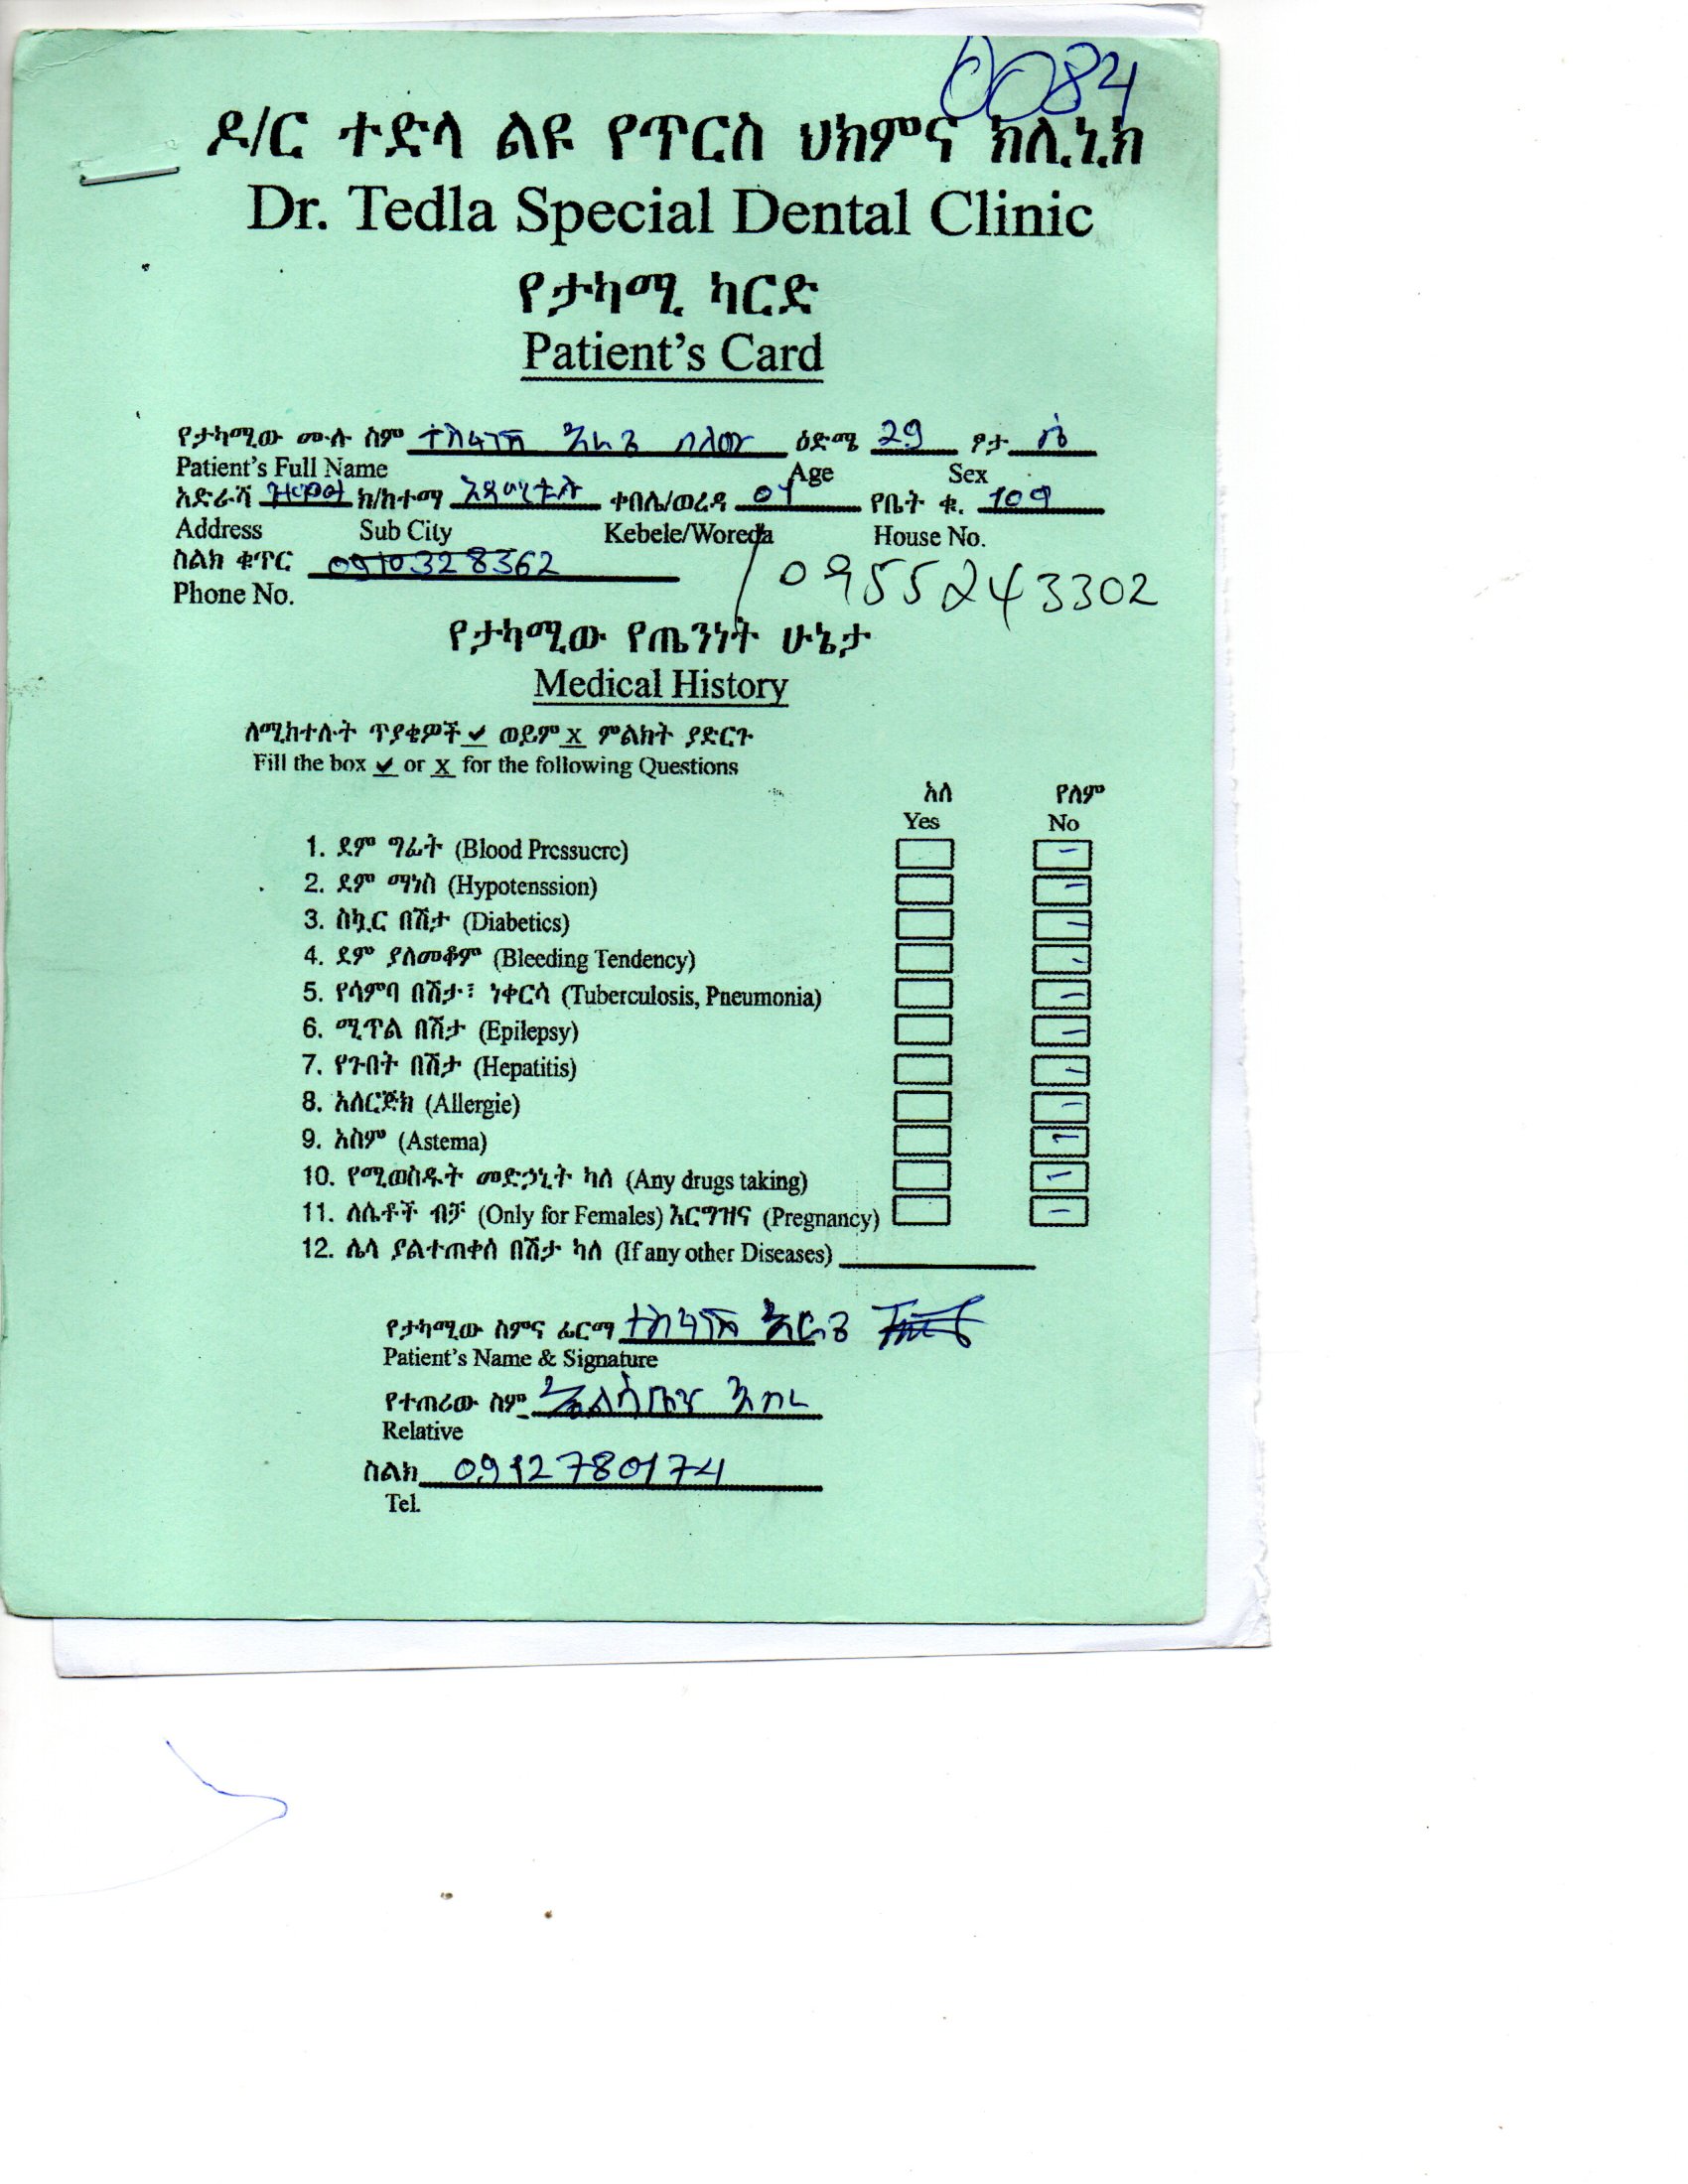 0084
ዶ/ር ተድላ ልዩ የጥርስ ህክምና ክሊኒክ
Dr. Tedla Special Dental Clinic
የታካሚ ካርድ
Patient's Card
የታካሚው ሙሉ ስም ተስፋነሽ ዕድሜ 29 ፆታ ሴ
Patient's Full Name Age Sex
አድራሻ ክ/ከተማ ቀበሌ/ወረዳ 01 የቤት ቁ. 109
Address Sub City Kebele/Woreda House No.
ስልክ ቁጥር 0910328362 / 0955243302
Phone No.
የታካሚው የጤንነት ሁኔታ
Medical History
ለሚከተሉት ጥያቄዎች ✔ ወይም X ምልክት ያድርጉ
Fill the box ✔ or X for the following Questions
አለ የለም
Yes No
1. ደም ግፊት (Blood Pressuere) –
2. ደም ማነስ (Hypotenssion) –
3. ስኳር በሽታ (Diabetics) –
4. ደም ያለመቆም (Bleeding Tendency) –
5. የሳምባ በሽታ፣ ነቀርሳ (Tuberculosis, Pneumonia) –
6. ሚጥል በሽታ (Epilepsy) –
7. የጉበት በሽታ (Hepatitis) –
8. አለርጅክ (Allergie) –
9. አስም (Astema) –
10. የሚወስዱት መድኃኒት ካለ (Any drugs taking) –
11. ለሴቶች ብቻ (Only for Females) እርግዝና (Pregnancy) –
12. ሌላ ያልተጠቀሰ በሽታ ካለ (If any other Diseases)
የታካሚው ስምና ፊርማ ተስፋነሽ
Patient's Name & Signature
የተጠሪው ስም
Relative
ስልክ 0912780174
Tel.